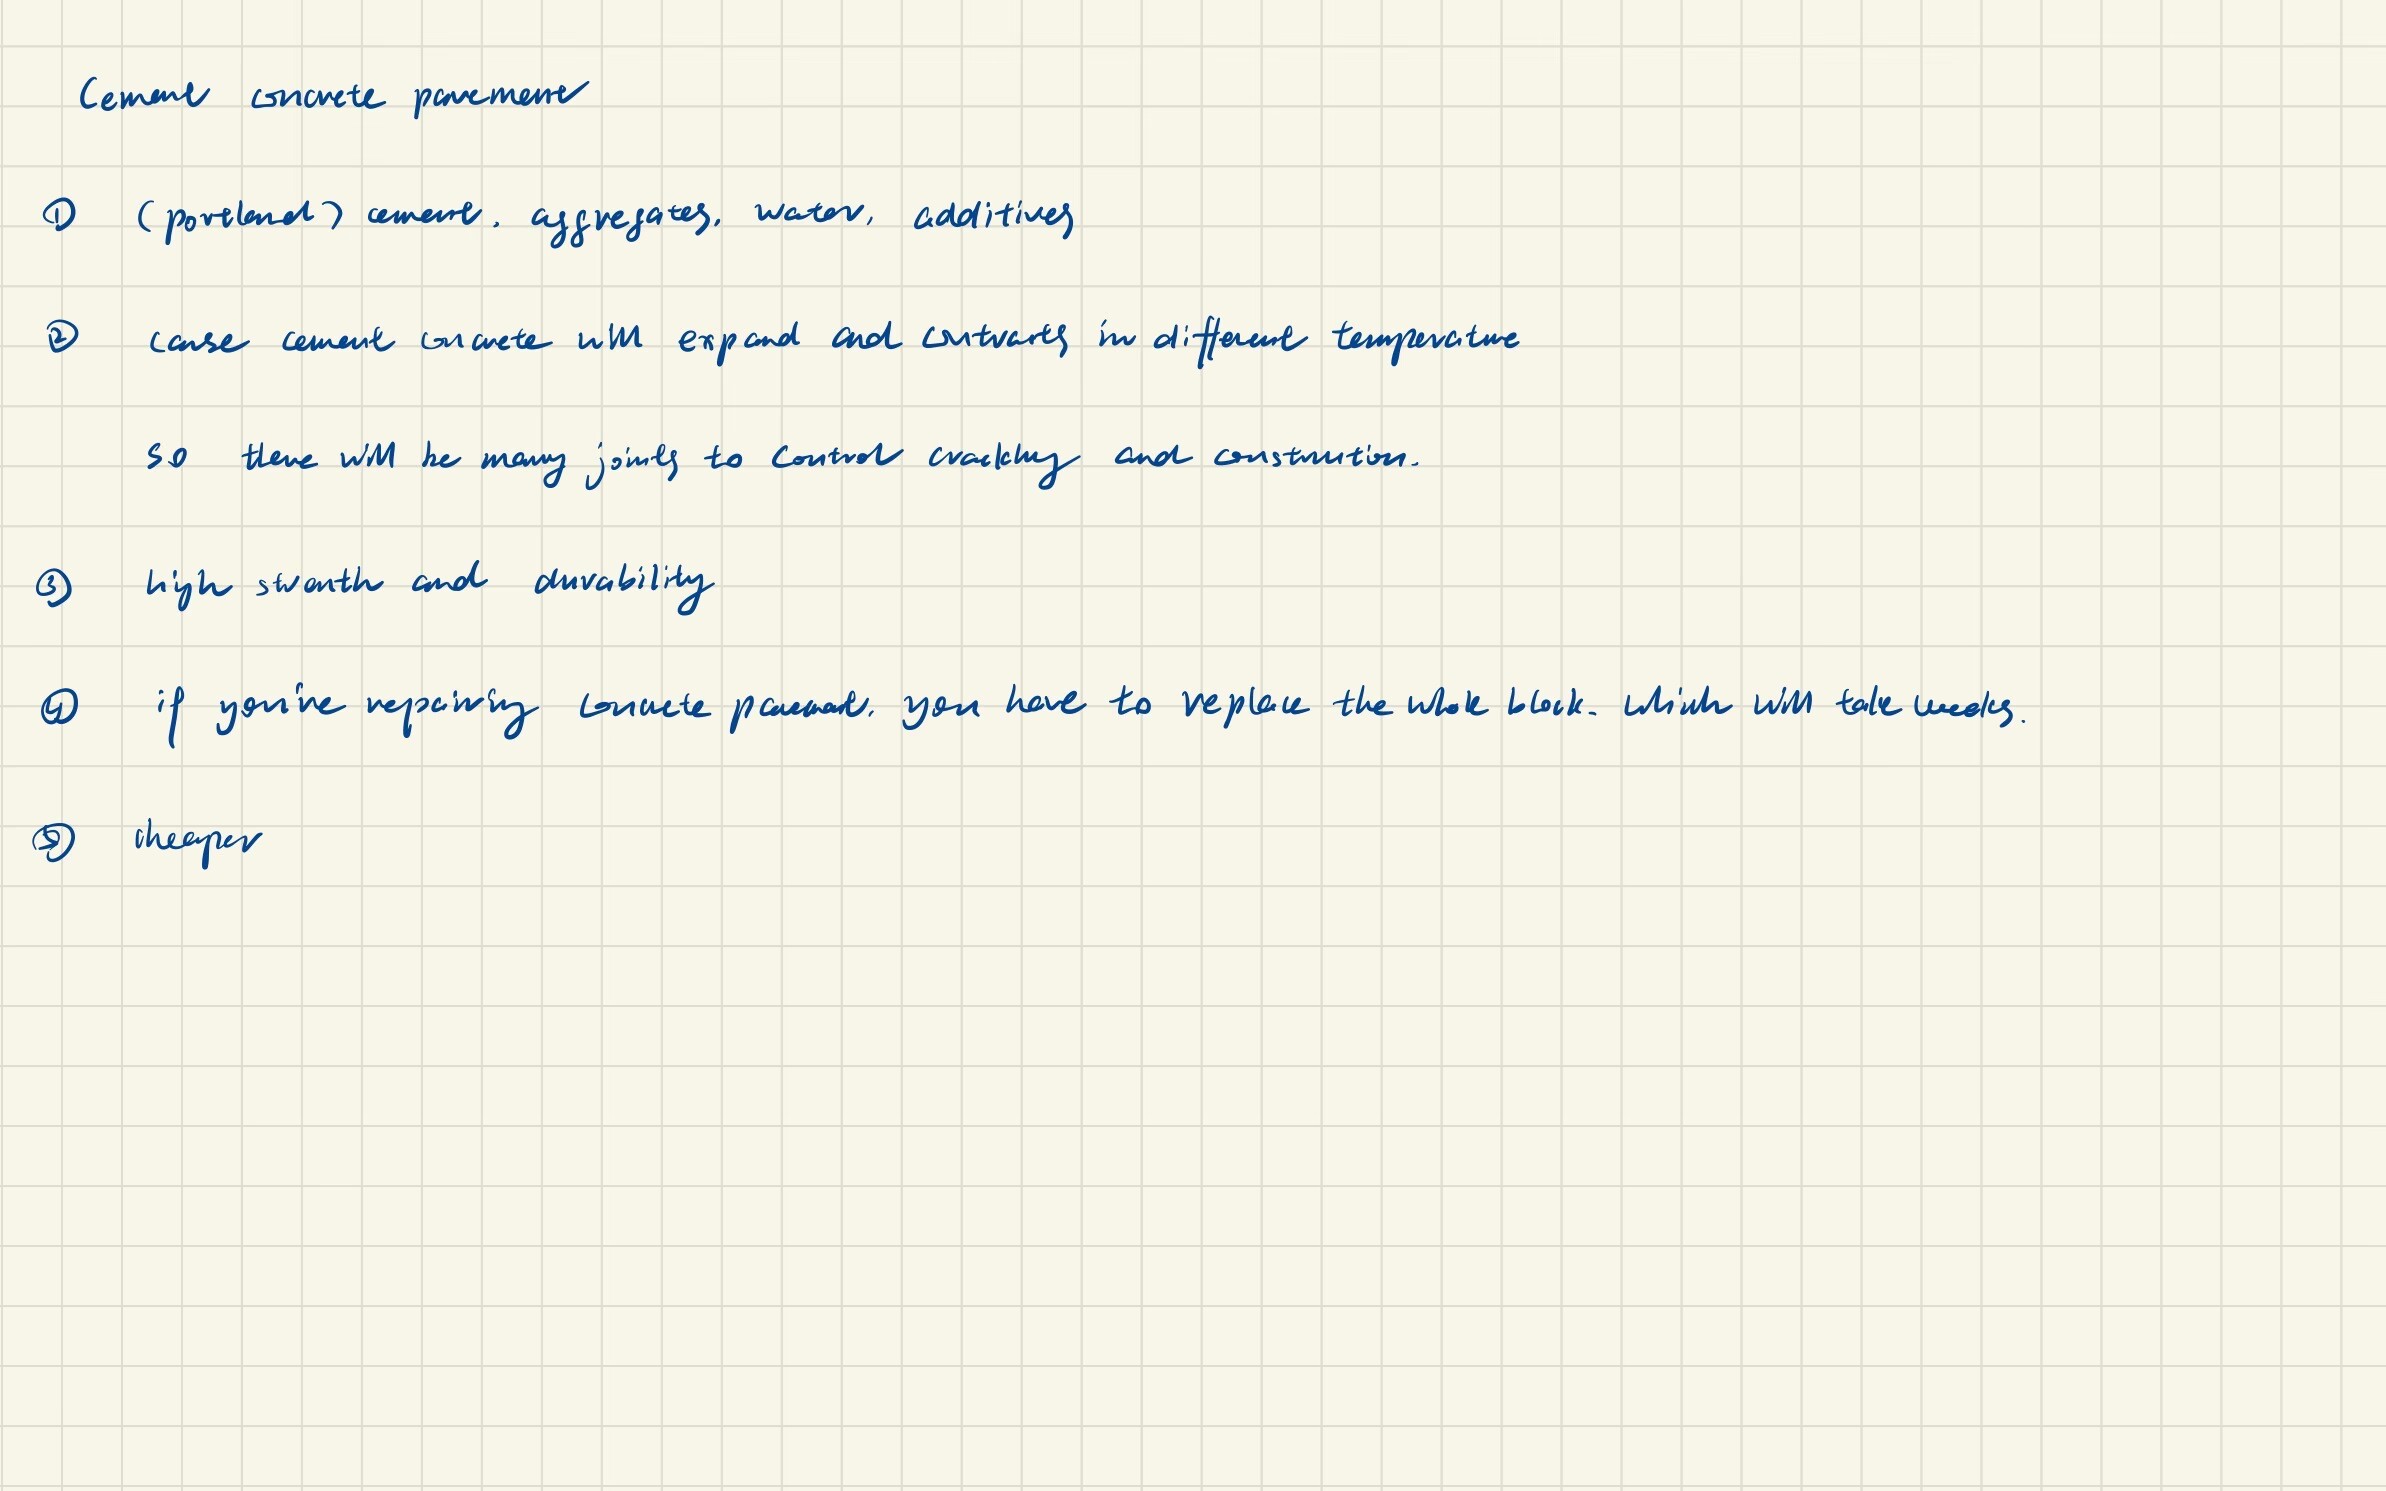 Cement concrete pavement
① (portland) cement, aggregates, water, additives
② cause cement concrete will expand and contracts in different temperature
so there will be many joints to control cracking and construction.
③ high strenth and durability
④ if you're repairing concrete pavement, you have to replace the whole block. which will take weeks.
⑤ cheaper